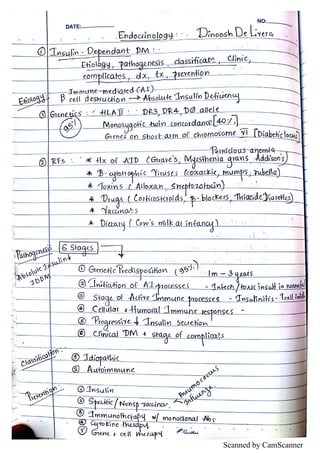 NO:
DATE:
Endocrinology : Dinoosh De Livera
① Insulin - Dependant DM : -
Etiology, Pathogenesis, classificatn, Clinic,
complicates, dx, tx, prevention
Etiology
Immune-mediated (AI)
β cell destruction → Absolute Insulin Deficiency
① Genetics : HLA II : DR3, DR4, DQ allele
95%
Monozygotic twin concordance [40%]
Genes on short arm of chromosome VI [Diabetic locus]
Pernicious anemia
② RFs : * Hx of AID (Grave's, Myesthenia gravis, Addison's)
* B-cytotrophic Viruses (coxackie, mumps, rubella)
* Toxins (Alloxan, Streptozotoin)
* Drugs (Corticosteroids, β-blockers, Thiazide Diuretics)
* Vaccinats
* Dietary (Cow's milk at infancy)
Pathogenesis
6 Stages
Absolute Insulin ↓
IDDM
① Genetic Predisposition (95%)
1m - 3 years
② Initiation of AI processes - Infectn/toxic insult in
③ Stage of Active Immune processes - Insulinitis - T cell
④ Cellular + Humoral Immune responses -
⑤ Progressive ↓ Insulin Secretion
⑥ Clinical DM + stage of complicats
Classification
① Idiopathic
② Autoimmune
Prevention
① Insulin
② Specific / Nonsp. vaccina
Pneumococcus
influenza
③ Immunotherapy w/ monoclonal Abs
④ Cytokine therapy
⑤ Gene + cell therapy
Scanned by CamScanner